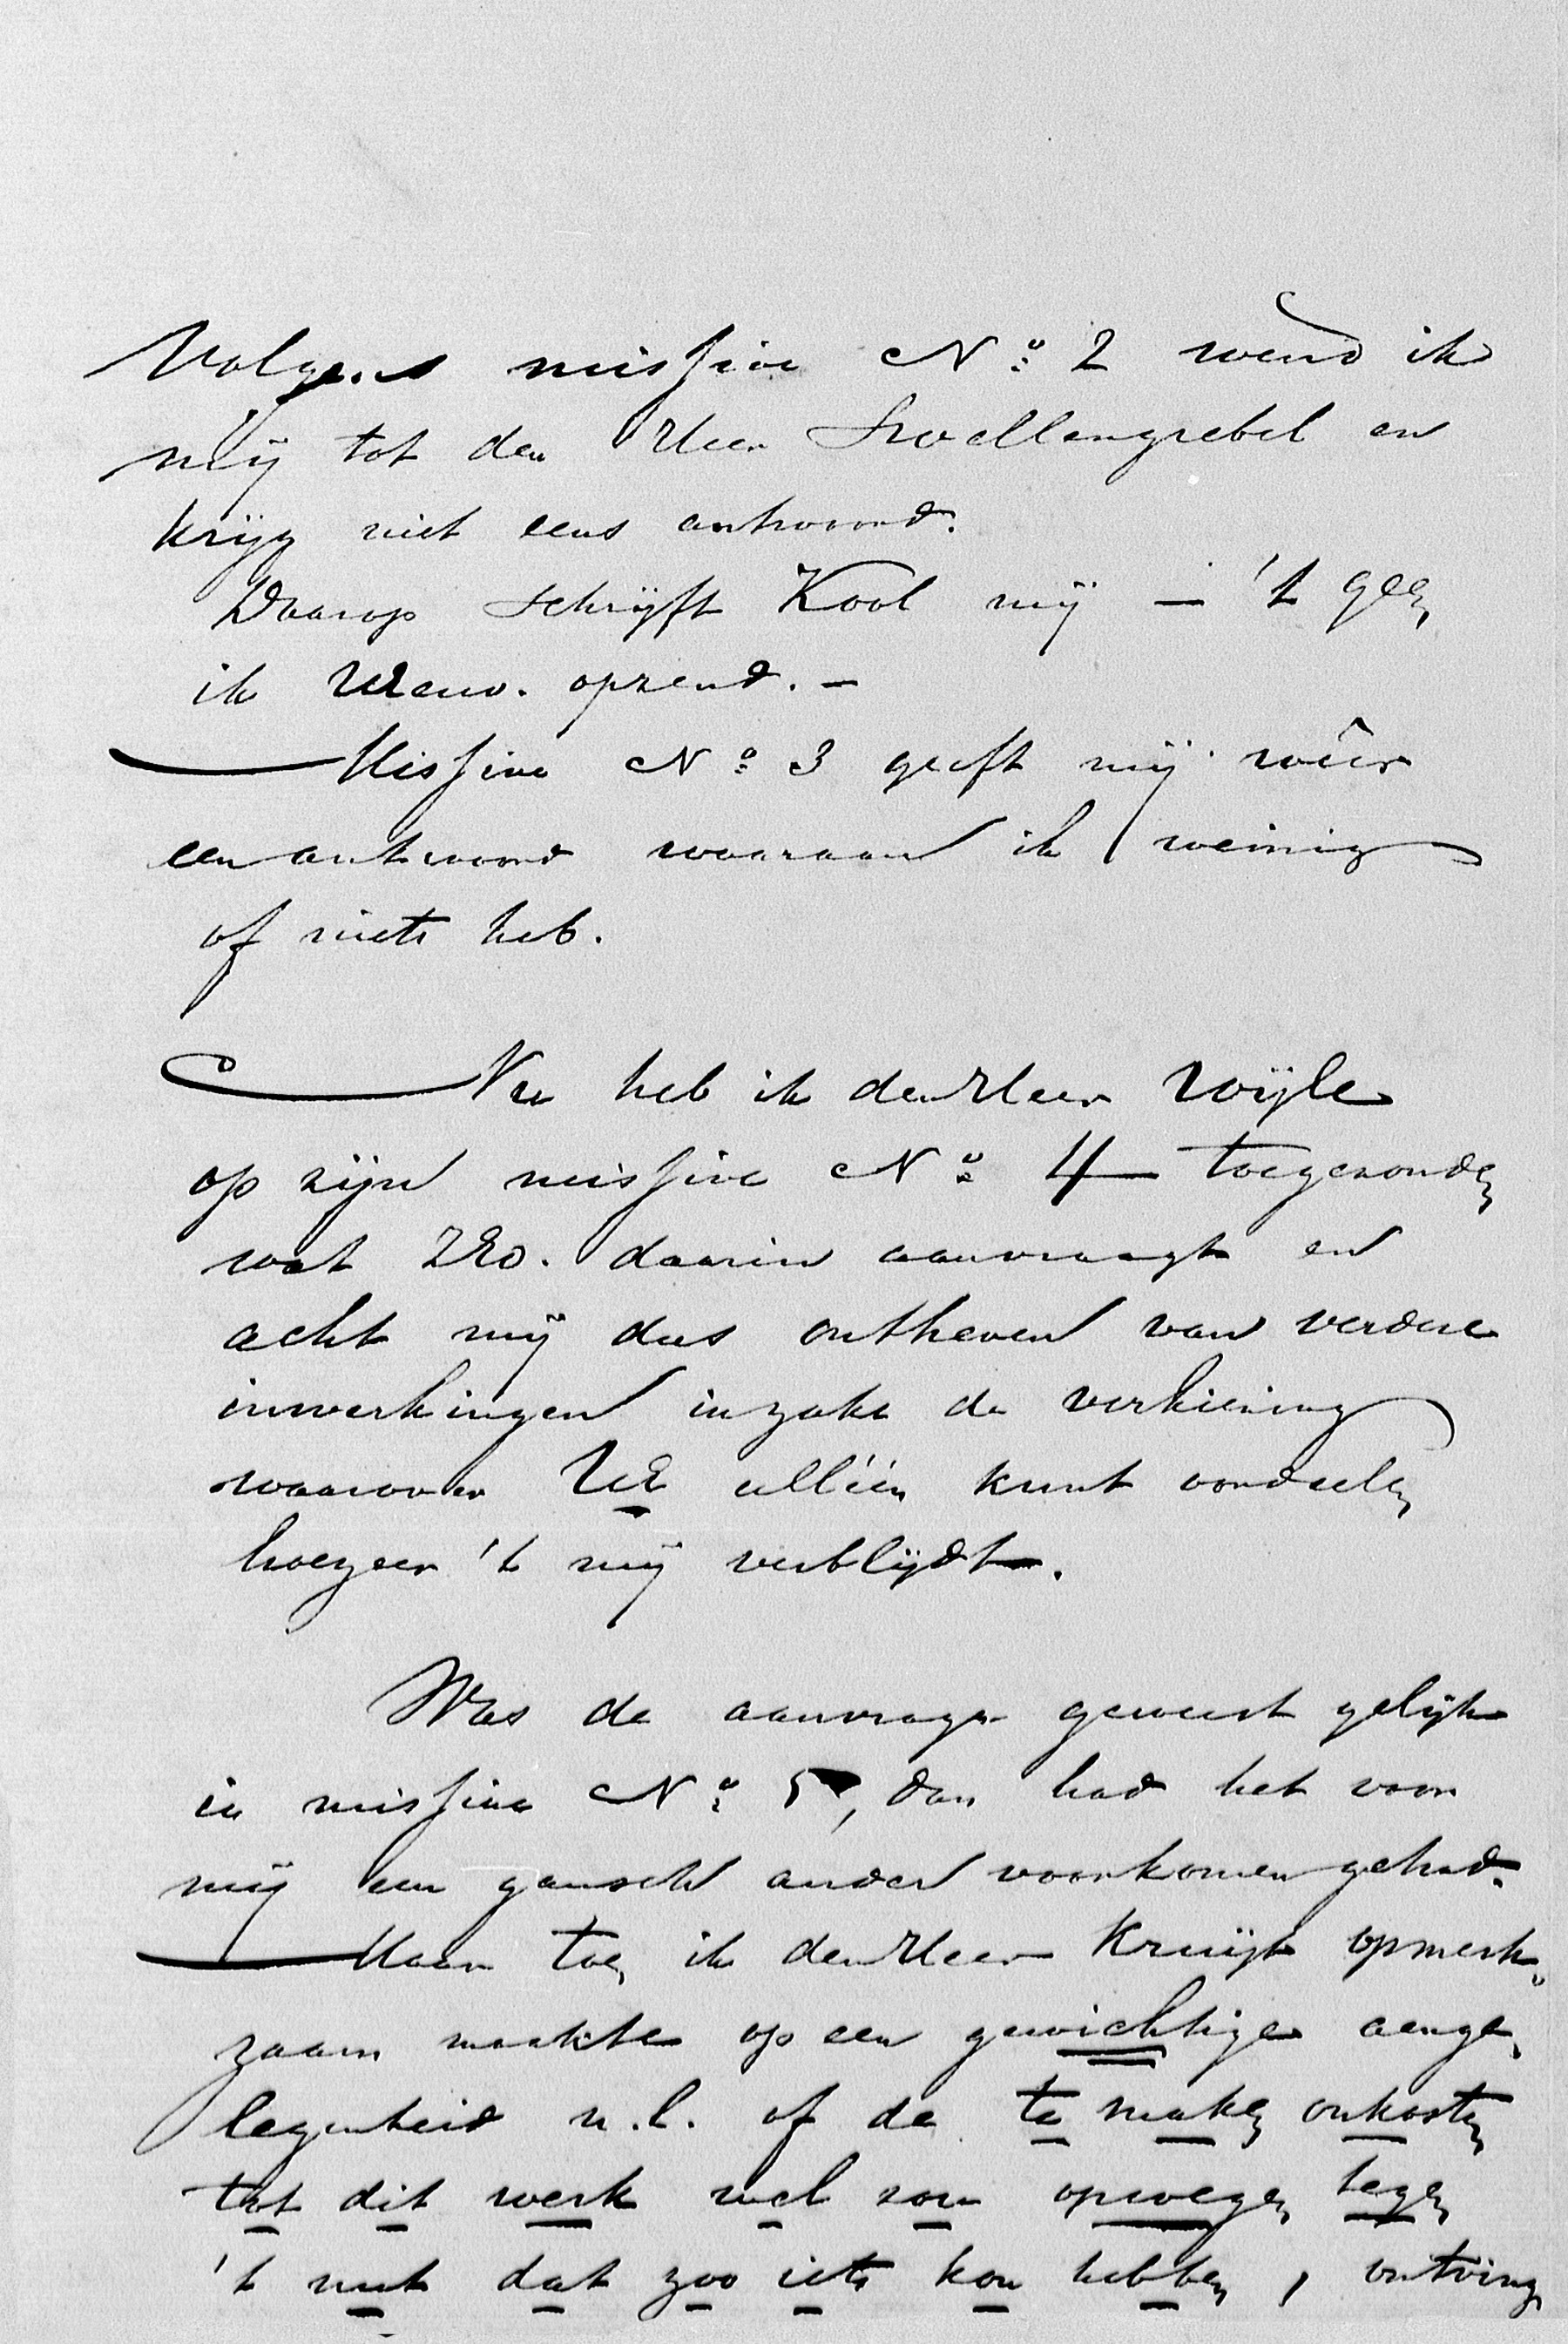 Volgens missive No. 2 wend ik
mij tot den Heer Swellengrebel en
krijg niet eens antwoord.
Daarop schrijft Kool mij — 't geen
ik UEeuw. opzend. —
— Missive No. 3 geeft mij wêer
een antwoord waaraan ik weinig
of niets heb.
— Nu heb ik den Heer Wijle
op zijn missive No. 4 toegezonden
wat ZEo. daarin aanvraagt en
acht mij dus ontheven van verdere
inwerkingen inzake de verkiening
waarover UE alléén kunt oordeelen
hoezeer 't mij verblijdt.
Was de aanvrage geweest gelijk
in missive No. 5, dan had het voor
mij een gansch ander voorkomen gehad.
— Maar toen ik den Heer Kruijt opmerk„
zaam maakte op een gewichtige aange„
legenheid n.l. of de te maken onkosten
tot dit werk wel zou opwegen tegen
't nut dat zoo iets kon hebben, ontving